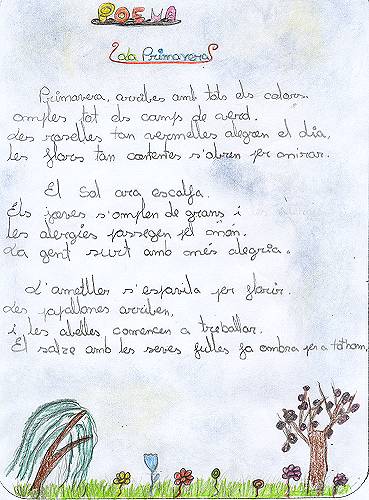 POEMA
La Primavera
Primavera, arribes amb tots els colors.
omples tot els camps de verd.
Les roselles tan vermelles alegren el dia,
les flors tan contentes s'obren per mirar.
El Sol ara escalfa.
Els joves s'omplen de grans i
les alergies passegen pel món.
La gent surt amb més alegria.
L'ametller s'espavila per florir.
Les papallones arriben,
i les abelles comencen a treballar.
El salze amb les seves fulles fa ombra per a tothom.